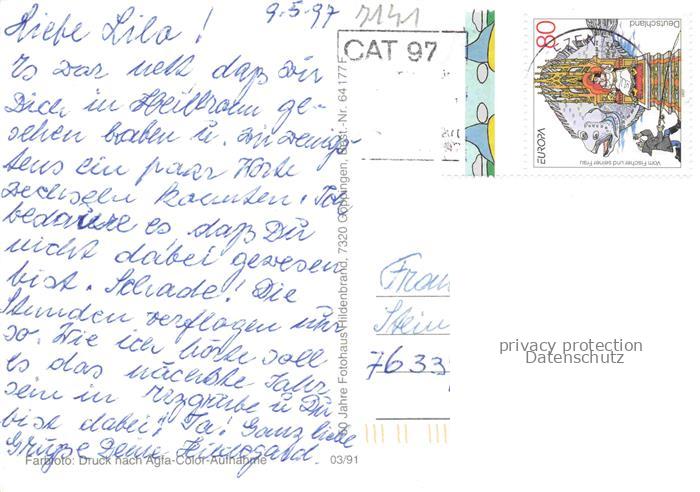 9.5.97
7141
Liebe Lilo!
Es war nett daß wir
Dich in Heilbronn ge-
sehen haben u. wir wenigs-
tens ein paar Worte
wechseln konnten. Ich
bedaure es daß Du
nicht dabei gewesen
bist. Schade! Die
Stunden verflogen nur
so. Wie ich hörte soll
es das nächste Jahr
sein in Erzgrube u Du
bist dabei! Ja! Ganz liebe
Grüße Deine Hildegard.
Farbfoto: Druck nach Agfa-Color-Aufnahme 03/91
Jahre Fotohaus Hildenbrand, 7320 Göppingen, Best.-Nr. 64 177 F
CAT 97
80
Deutschland
EUROPA
Vom Fischer und seiner Frau
Frau
Stein
7633
privacy protection
Datenschutz